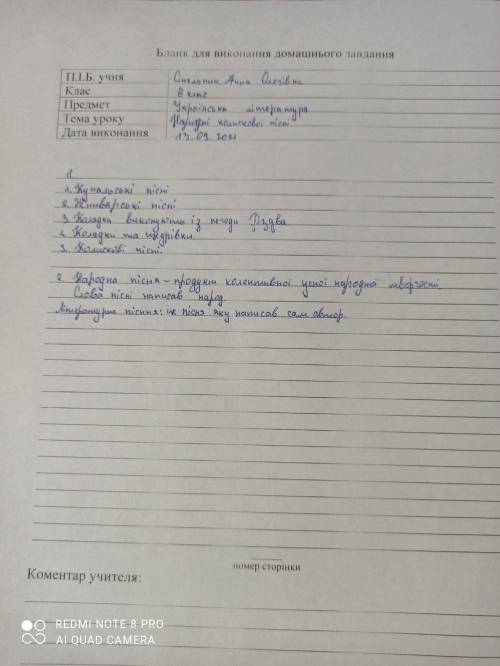 Бланк для виконання домашнього завдання
П.І.Б. учня Анна Олегівна
Клас 8 клас
Предмет Українська література
Тема уроку Народні колискової пісні
Дата виконання 13.09.2021
1.
1. Купальські пісні
2. Жниварські пісні
3. Колядки виконують із нагоди Різдва
4. Колядки та щедрівки.
5. Колискові пісні.
2. Народна пісня – продукт колективної усної народної творчості
Слова пісні написав народ.
Літературна пісня: це пісня яку написав сам автор.
номер сторінки
Коментар учителя:
REDMI NOTE 8 PRO
AI QUAD CAMERA